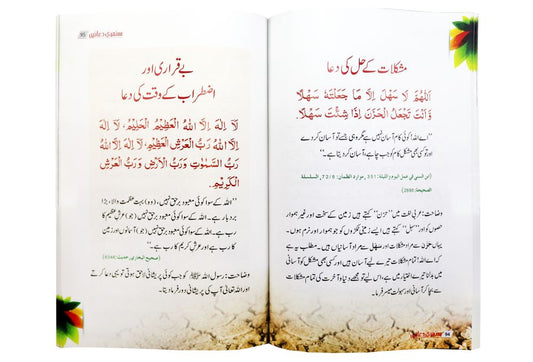 مشکلات کے حل کی دعا
اَللّٰهُمَّ لَا سَهْلَ اِلَّا مَا جَعَلْتَهٗ سَهْلًا
وَّاَنْتَ تَجْعَلُ الْحَزْنَ اِذَا شِئْتَ سَهْلًا.
”اے اللہ! کوئی کام آسان نہیں ہے مگر وہی جسے تو آسان کر دے
اور تو کسی بھی مشکل کام کو جب چاہے، آسان کر دیتا ہے۔“
(ابن السني في عمل اليوم والليلة: 351، موارد الظمآن: 72/6، السلسلة
الصحيحة: 2886)
وضاحت: عربی لغت میں ”حزن“ کہتے ہیں زمین کے سخت اور غیر ہموار
کو اور ”سہل“ کہتے ہیں ایسے زمینی ٹکڑوں کو جو ہموار اور نرم ہوں۔
یہاں حزن سے مراد مشکلات اور سہل سے مراد آسانیاں ہیں۔ مطلب یہ ہے
کہ تمام مشکلات تیرے لیے آسان ہیں اور کسی بھی مشکل کو آسانی
میں بدلنا تیرے اختیار میں ہے، اس لیے تو مجھے دنیا و آخرت کی تمام مشکلات
سے بچا کر آسانی اور سہولت میسر فرما۔
94
سنہری دعائیں
95
بے قراری اور
اضطراب کے وقت کی دعا
لَا اِلٰهَ اِلَّا اللّٰهُ الْعَظِيْمُ الْحَلِيْمُ، لَا اِلٰهَ
اِلَّا اللّٰهُ رَبُّ الْعَرْشِ الْعَظِيْمِ، لَا اِلٰهَ اِلَّا اللّٰهُ
رَبُّ السَّمٰوٰتِ وَرَبُّ الْاَرْضِ وَرَبُّ الْعَرْشِ
الْكَرِيْمِ.
”اللہ کے سوا کوئی معبود برحق نہیں، (وہ) بہت عظمت والا، بڑا
بردبار ہے۔ اللہ کے سوا کوئی معبود برحق نہیں (جو) عرش عظیم کا
رب ہے۔ اللہ کے سوا کوئی معبود برحق نہیں (جو) آسمانوں اور زمین
کا رب ہے اور عرش کریم کا رب ہے۔“
(صحيح البخاري، حديث: 6346)
وضاحت: رسول اللہ ﷺ کو جب کوئی پریشانی لاحق ہوتی تو یہی دعا کرتے
اور اللہ تعالیٰ آپ کی پریشانی دور فرما دیتا۔